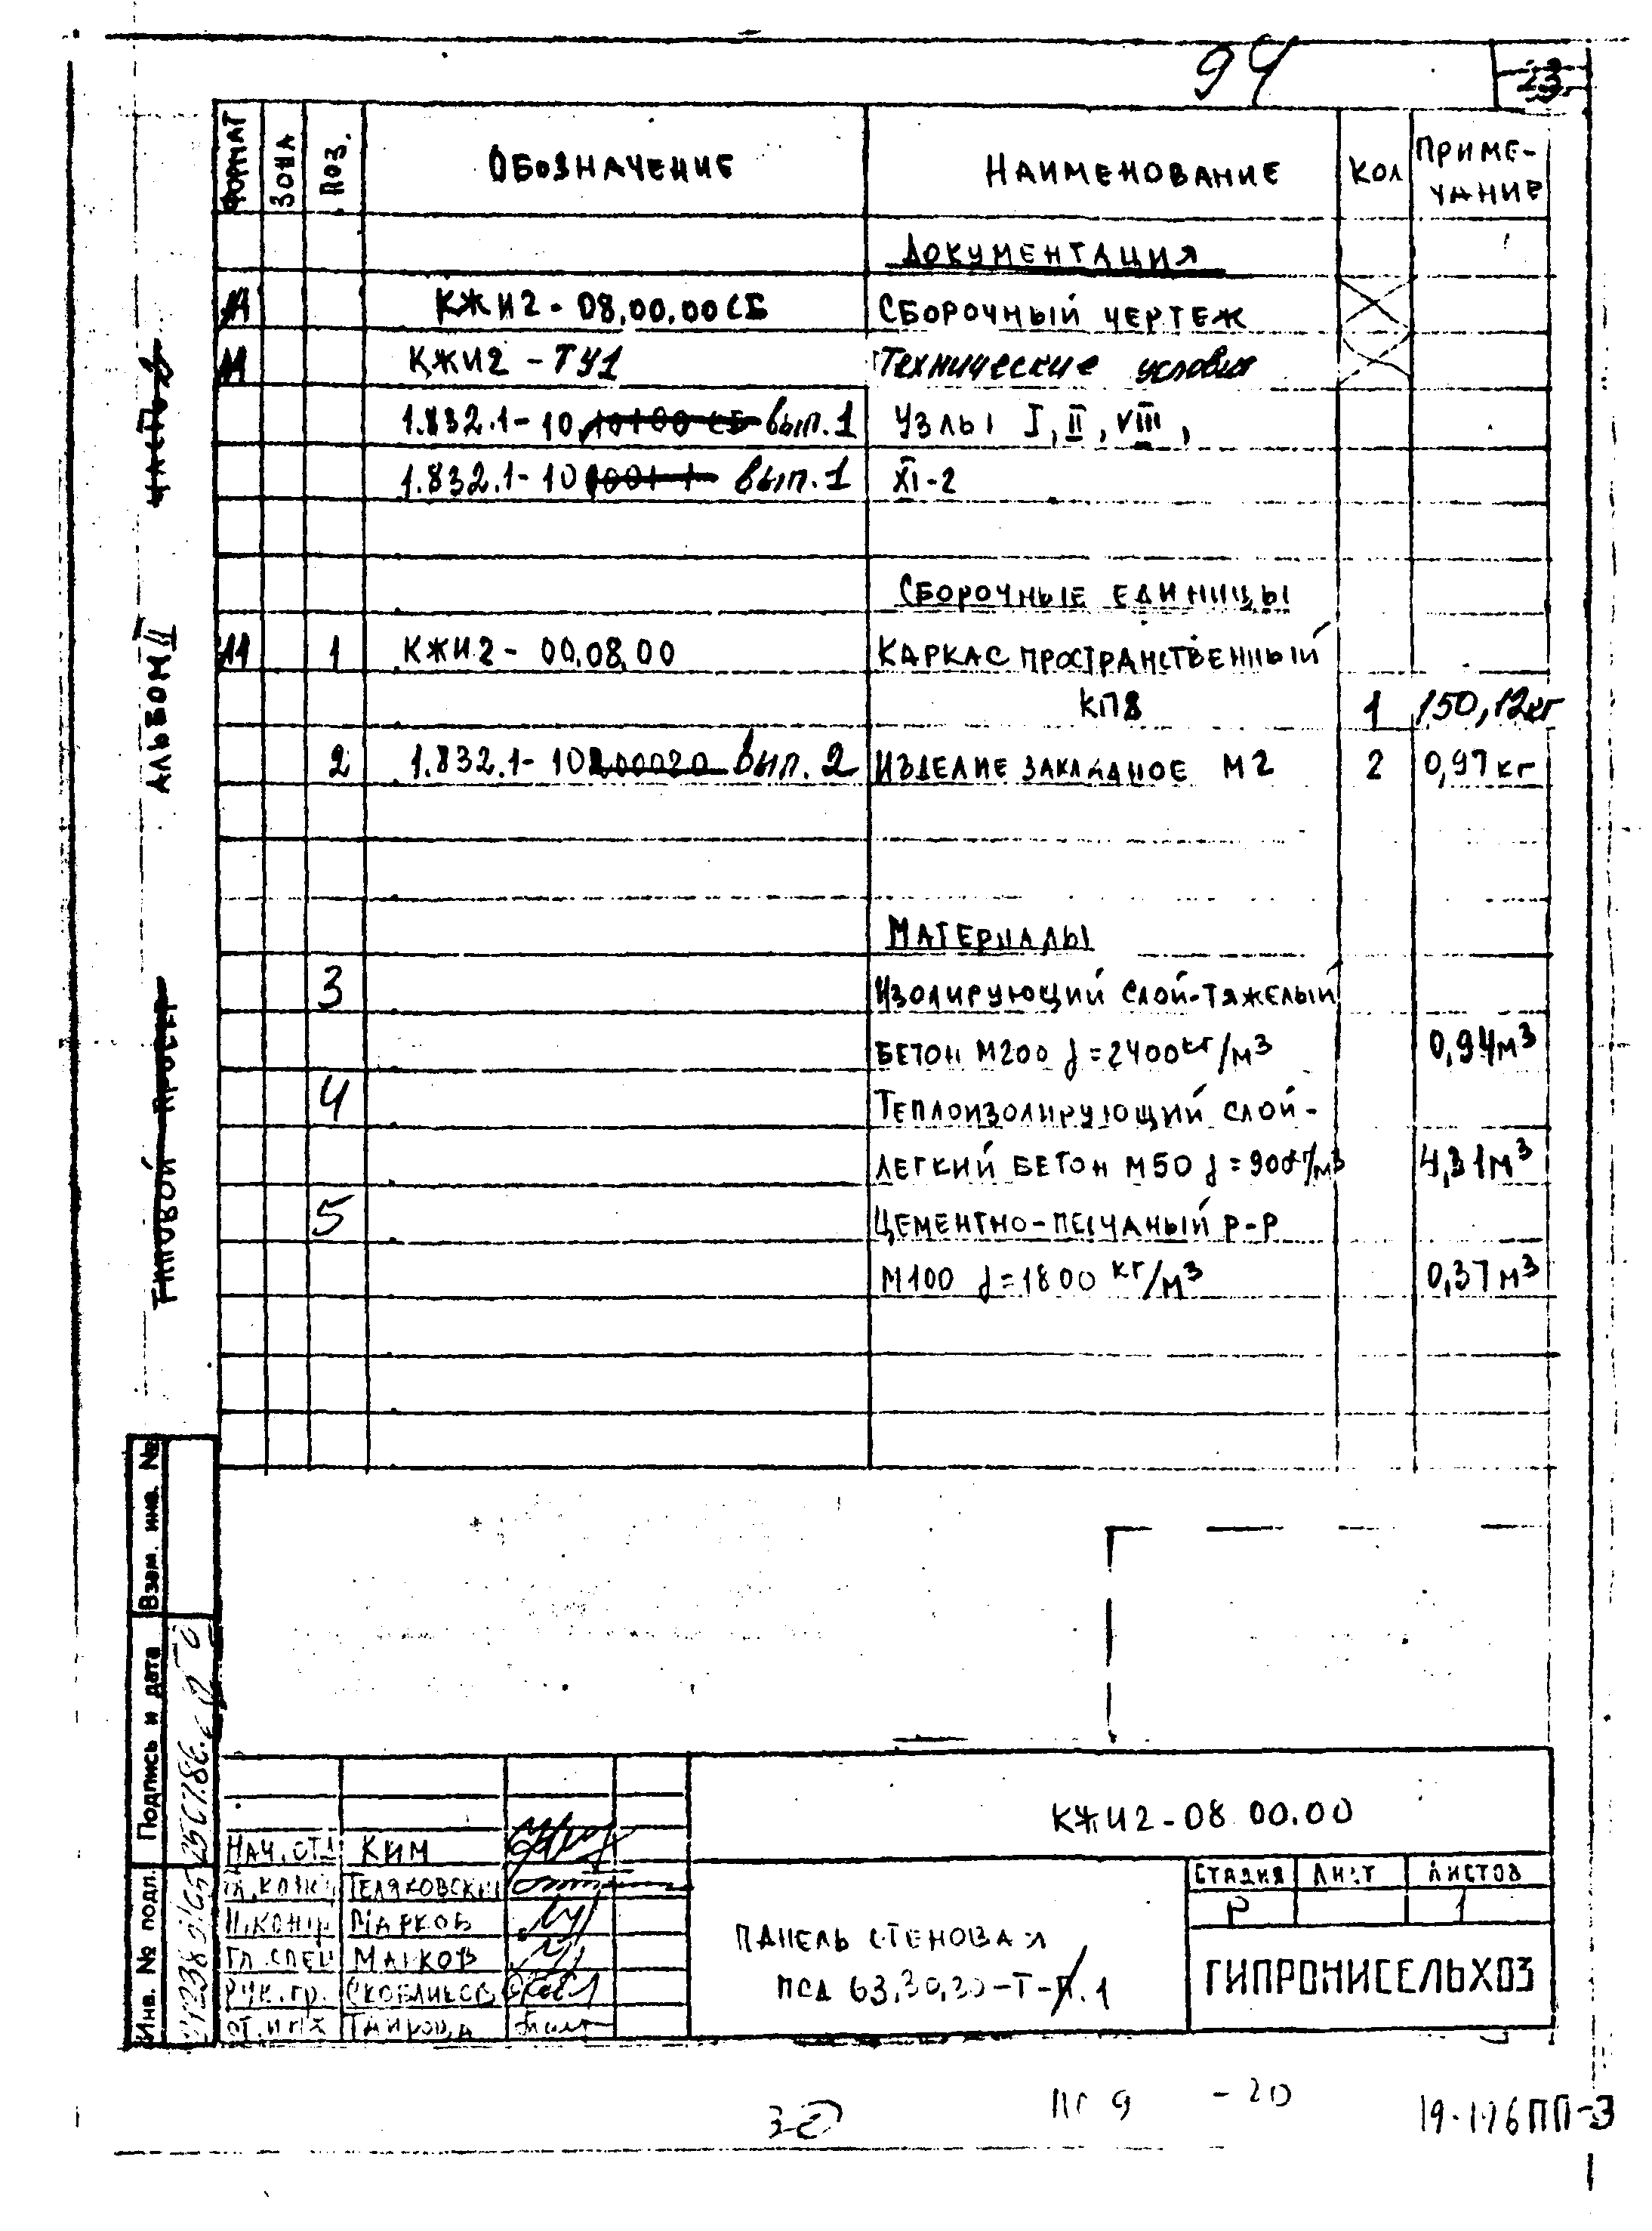 94
23
ФОРМАТ ЗОНА ПОЗ. ОБОЗНАЧЕНИЕ НАИМЕНОВАНИЕ КОЛ ПРИМЕ-
ЧАНИЕ
ДОКУМЕНТАЦИЯ
КЖИ2-08.00.00СБ СБОРОЧНЫЙ ЧЕРТЕЖ
11 КЖИ2-ТУ1 Технические условия
1.832.1-10 вып.1 УЗЛЫ I, II, VIII,
1.832.1-10 вып.1 XI-2
СБОРОЧНЫЕ ЕДИНИЦЫ
11 1 КЖИ2-00.08.00 КАРКАС ПРОСТРАНСТВЕННЫЙ
КП8 1 150,12кг
2 1.832.1-10 вып.2 ИЗДЕЛИЕ ЗАКЛАДНОЕ М2 2 0,97кг
МАТЕРИАЛЫ
3 ИЗОЛИРУЮЩИЙ СЛОЙ-ТЯЖЕЛЫЙ
БЕТОН М200 γ=2400кг/м3 0,94м3
4 ТЕПЛОИЗОЛИРУЮЩИЙ СЛОЙ-
ЛЕГКИЙ БЕТОН М50 γ=900кг/м3 4,31м3
5 ЦЕМЕНТНО-ПЕСЧАНЫЙ Р-Р
М100 γ=1800 кг/м3 0,37м3
ЧАСТЬ
АЛЬБОМ II
ТИПОВОЙ ПРОЕКТ
Взам. инв. №
Подпись и дата
Инв. № подл.
КЖИ2-08.00.00
НАЧ.ОТД КИМ
ГЛ.КОНС ТЕЛЯКОВСКИЙ
Н.КОНТР МАРКОВ
ГЛ.СПЕЦ МАРКОВ
РУК.ГР.
СТ.ИНЖ ТАИРОВА
ПАНЕЛЬ СТЕНОВАЯ
ПСД 63.30.30-Т-П.1
СТАДИЯ ЛИСТ ЛИСТОВ
Р 1
ГИПРОНИСЕЛЬХОЗ
-20